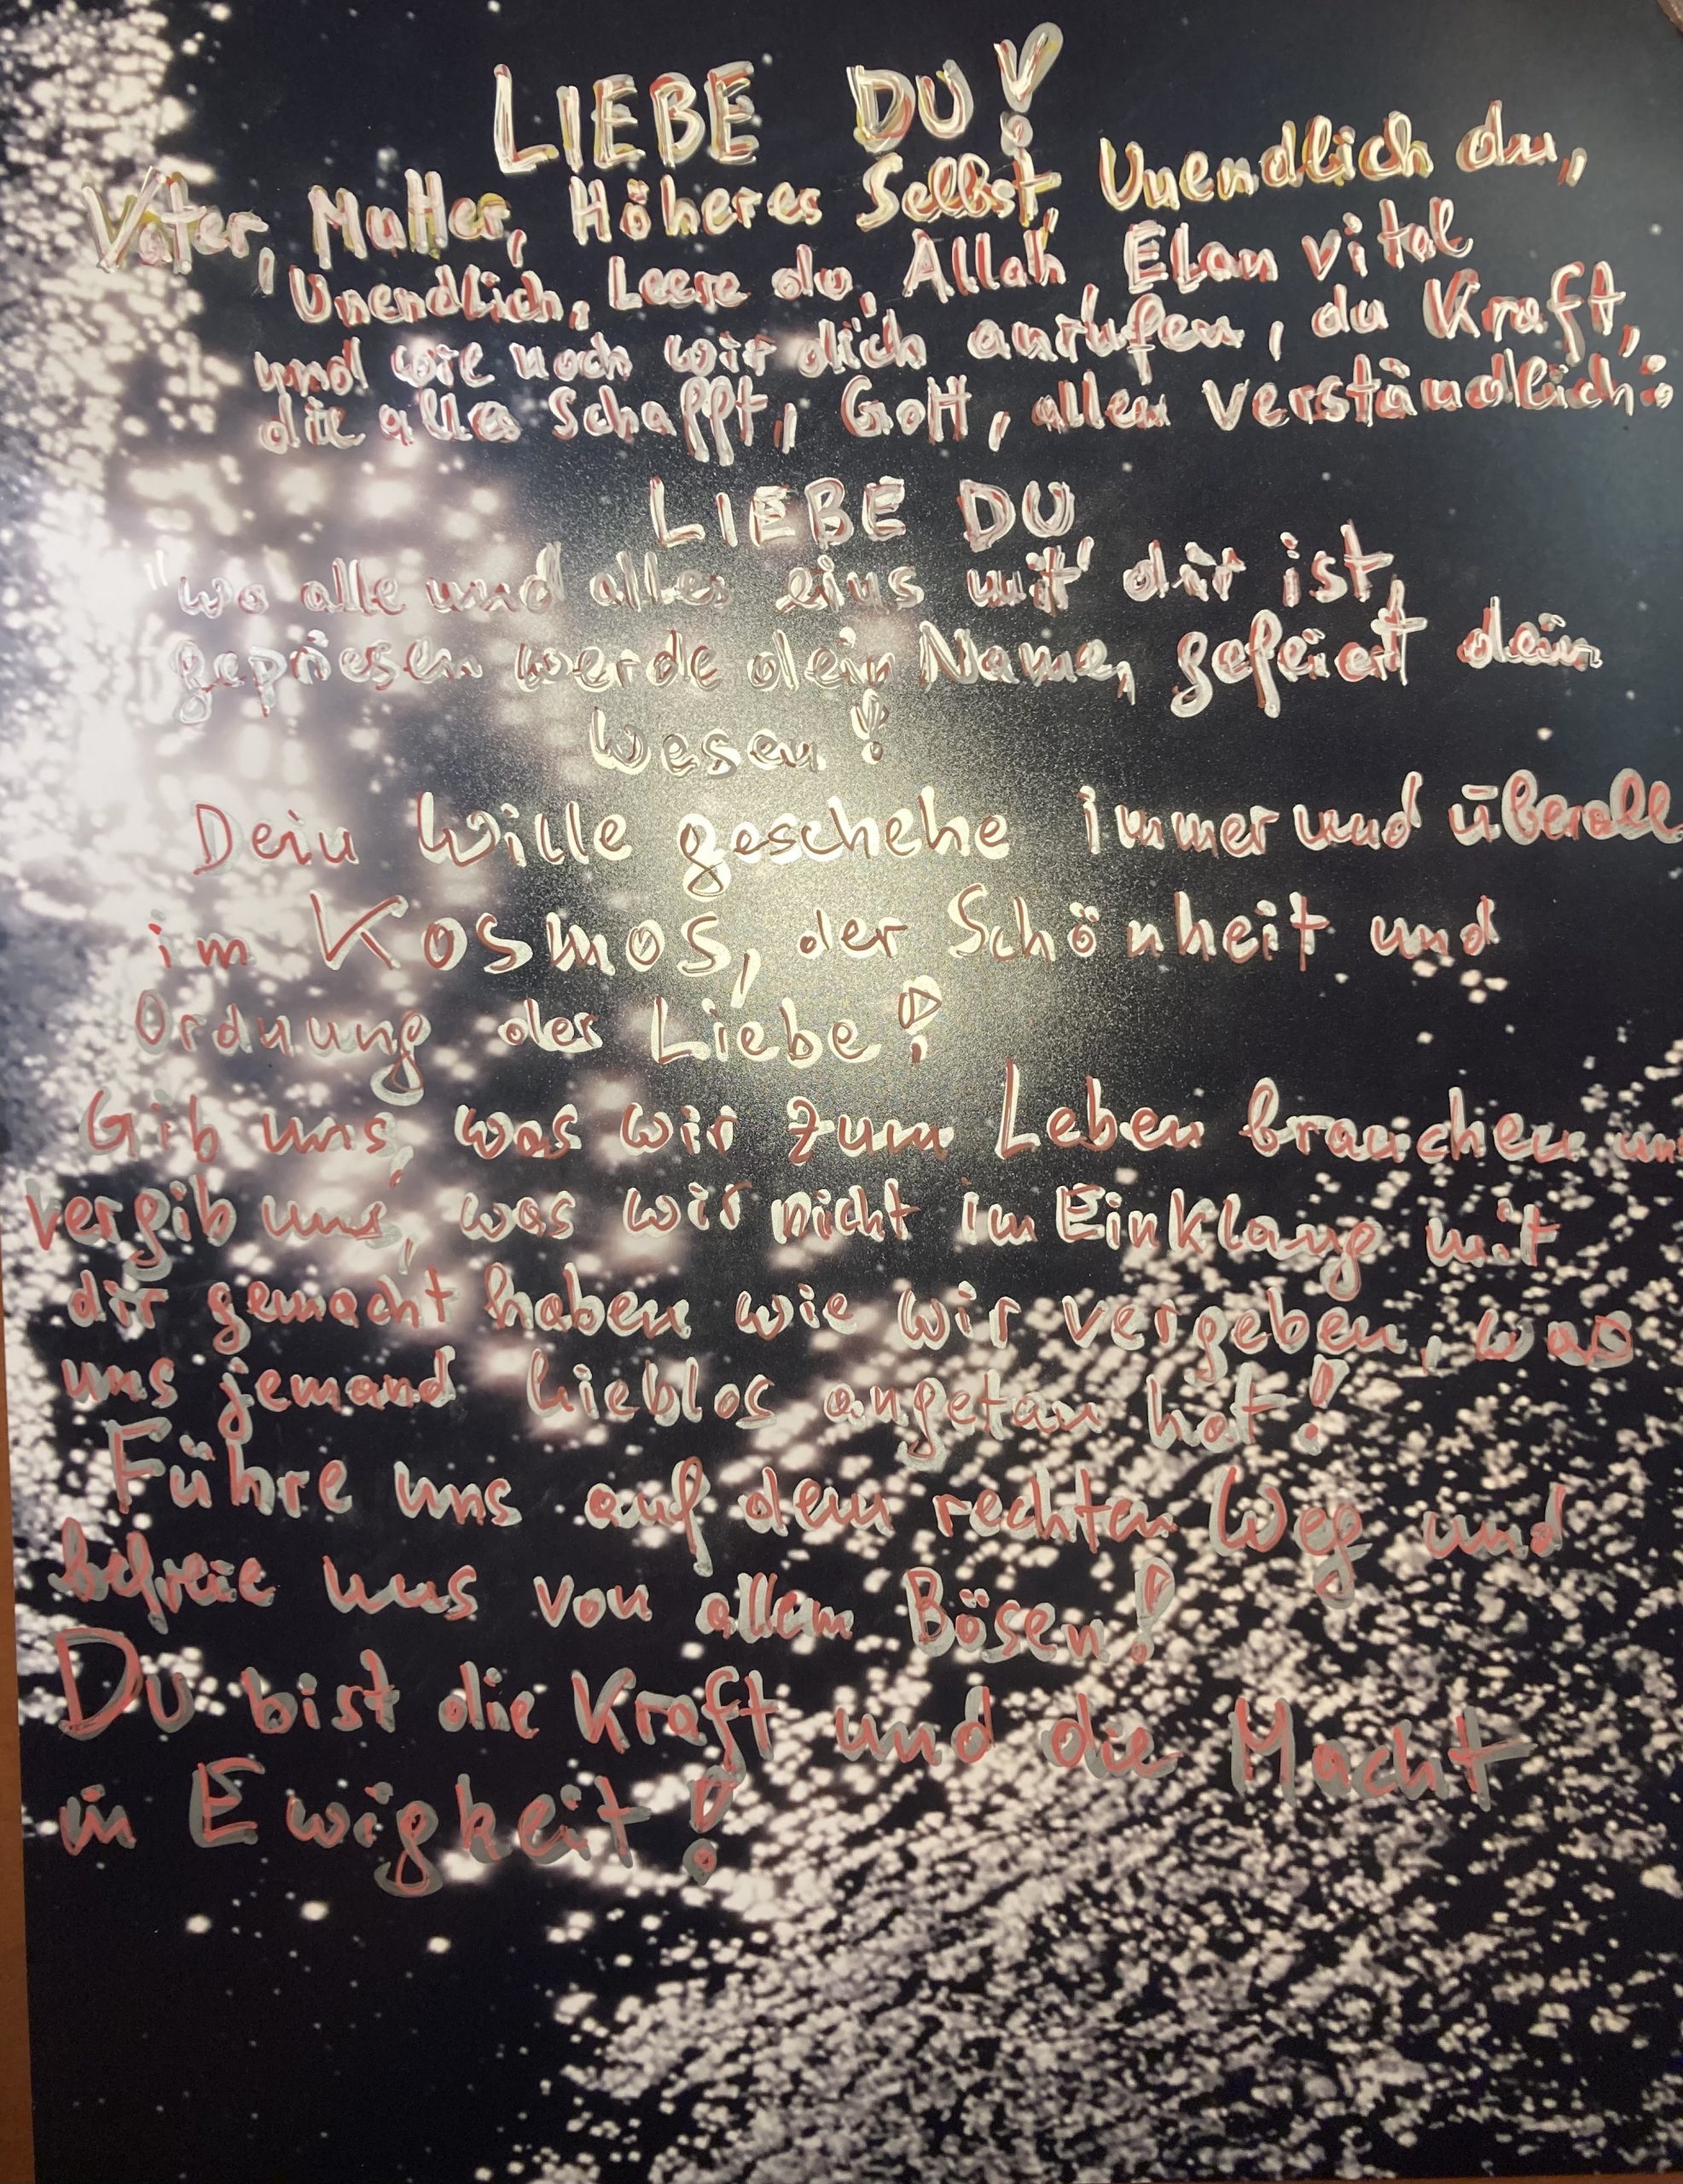 LIEBE DU!
Vater, Mutter, Höheres Selbst, Unendlich du,
Unendlich, Leere du, Allah, Elan vital
und wie noch wir dich anrufen, du Kraft,
die alles schafft, Gott, allen verständlich:
LIEBE DU
"wo alle und alles eins mit dir ist,
gepriesen werde dein Name, gefeiert dein
Wesen!
Dein Wille geschehe immer und überall
im Kosmos, der Schönheit und
Ordnung der Liebe!
Gib uns, was wir zum Leben brauchen und
vergib uns, was wir nicht im Einklang mit
dir gemacht haben wie wir vergeben, was
uns jemand lieblos angetan hat!
Führe uns auf dem rechten Weg und
befreie uns von allem Bösen!
Du bist die Kraft und die Macht
in Ewigkeit!